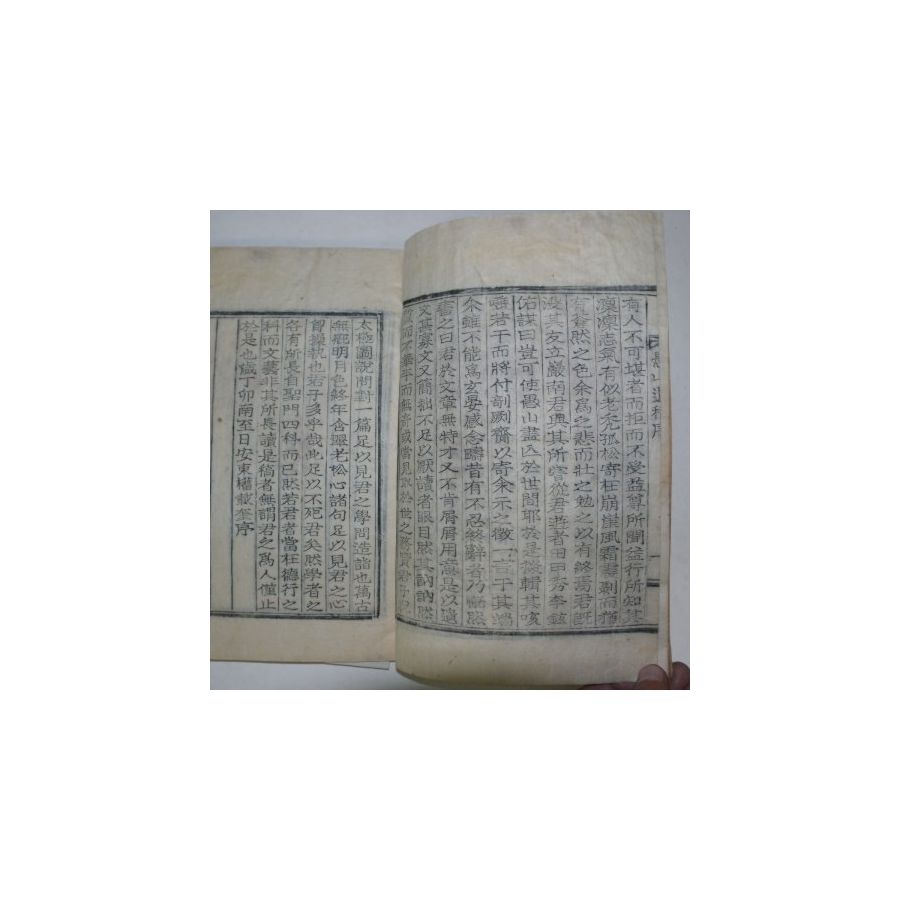 有人不可堪者而拒而不受益尊所聞益行所知其
凜凜志氣有似老禿孤松寄在崩崖風霜書剝而猶
蒼然之色余爲之悲而壯之勉之以有終焉君旣
沒其友立巖南君與其所嘗從君遊者田秀李鉉
佑謀曰豈可使愚山盡亾於世間耶於是裒輯其咳
唾若干而將付剞劂齎以寄余示之徵一言于其端
余雖不能爲玄晏感念疇昔有不忍終辭者乃慨然
書之曰君於文章無特才又不肯屑屑用意是以遺
文甚寡文又簡拙不足以厭讀者眼目然其訥訥然
太極圖說問對一篇足以見君之學問造詣也萬古
無痕明月色終年含翠老松心諸句足以見君之心
曾操執也君子多乎哉此足以不死君矣然學者之
各有所長自聖門四科而已然若君者當在德行之
科而文藝非其所長讀是稿者無謂君之爲人僅止
於是也歲丁卯南至日安東權載奎序